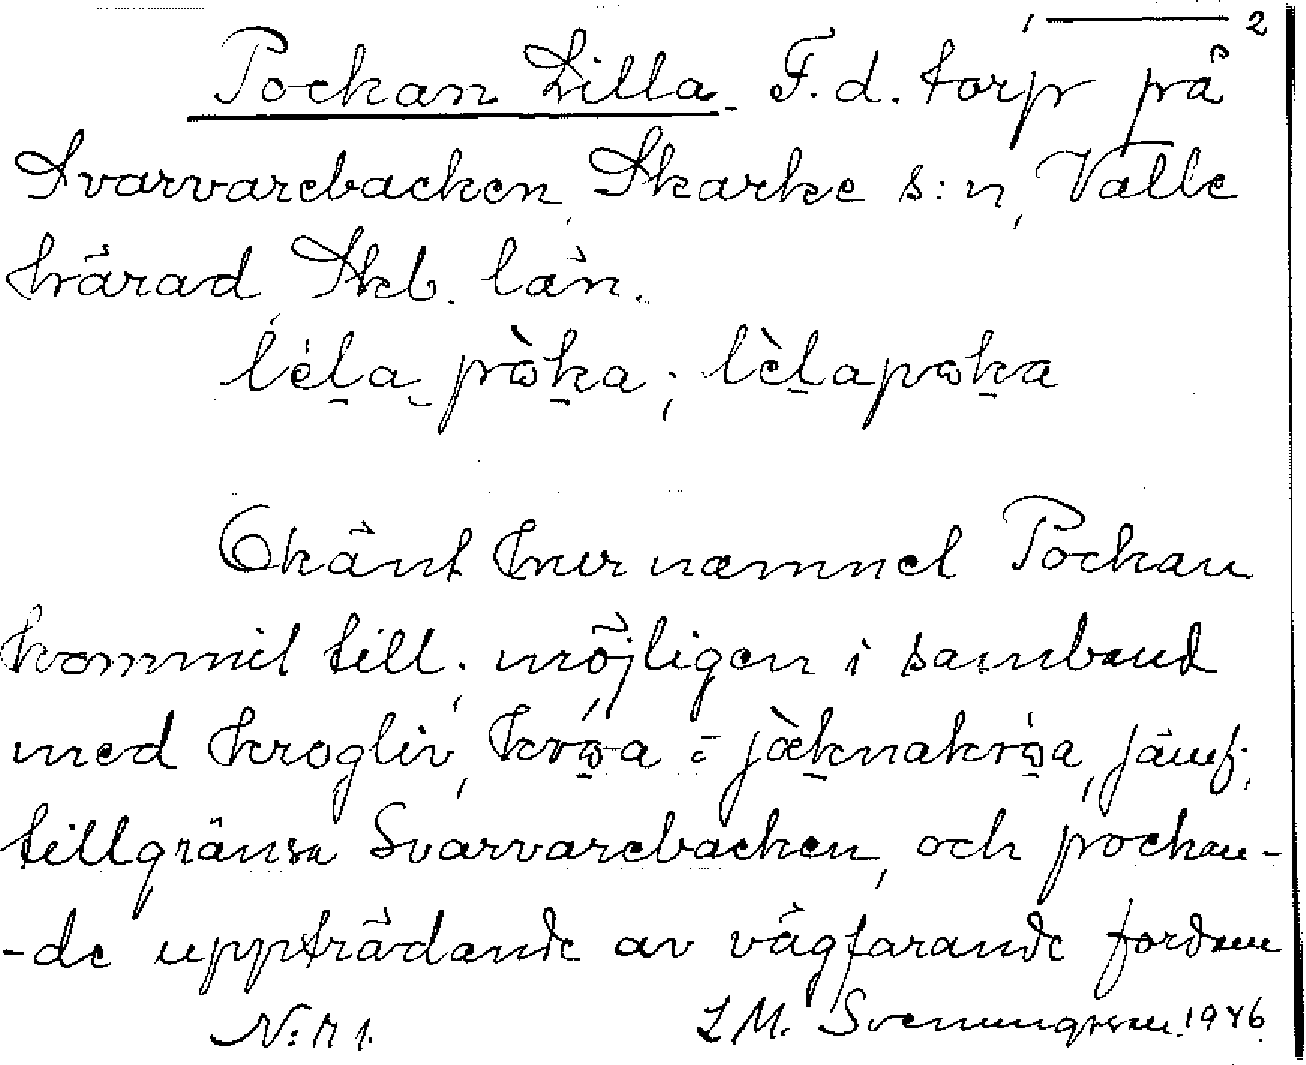 1 — 2
Pockan Lilla. F.d. torp på
Svarvarebacken, Skarke s:n, Valle
härad, Skb. län.
lèla pòka; lèlapoka
Okänt hur namnet Pockan
kommit till; möjligen i samband
med krogliv, kroa = jàknakròa, jämf.
tillgränsa Svarvarebacken, och pockan-
-de uppträdande av vägfarande fordom
L M. Svenungsson. 1946.